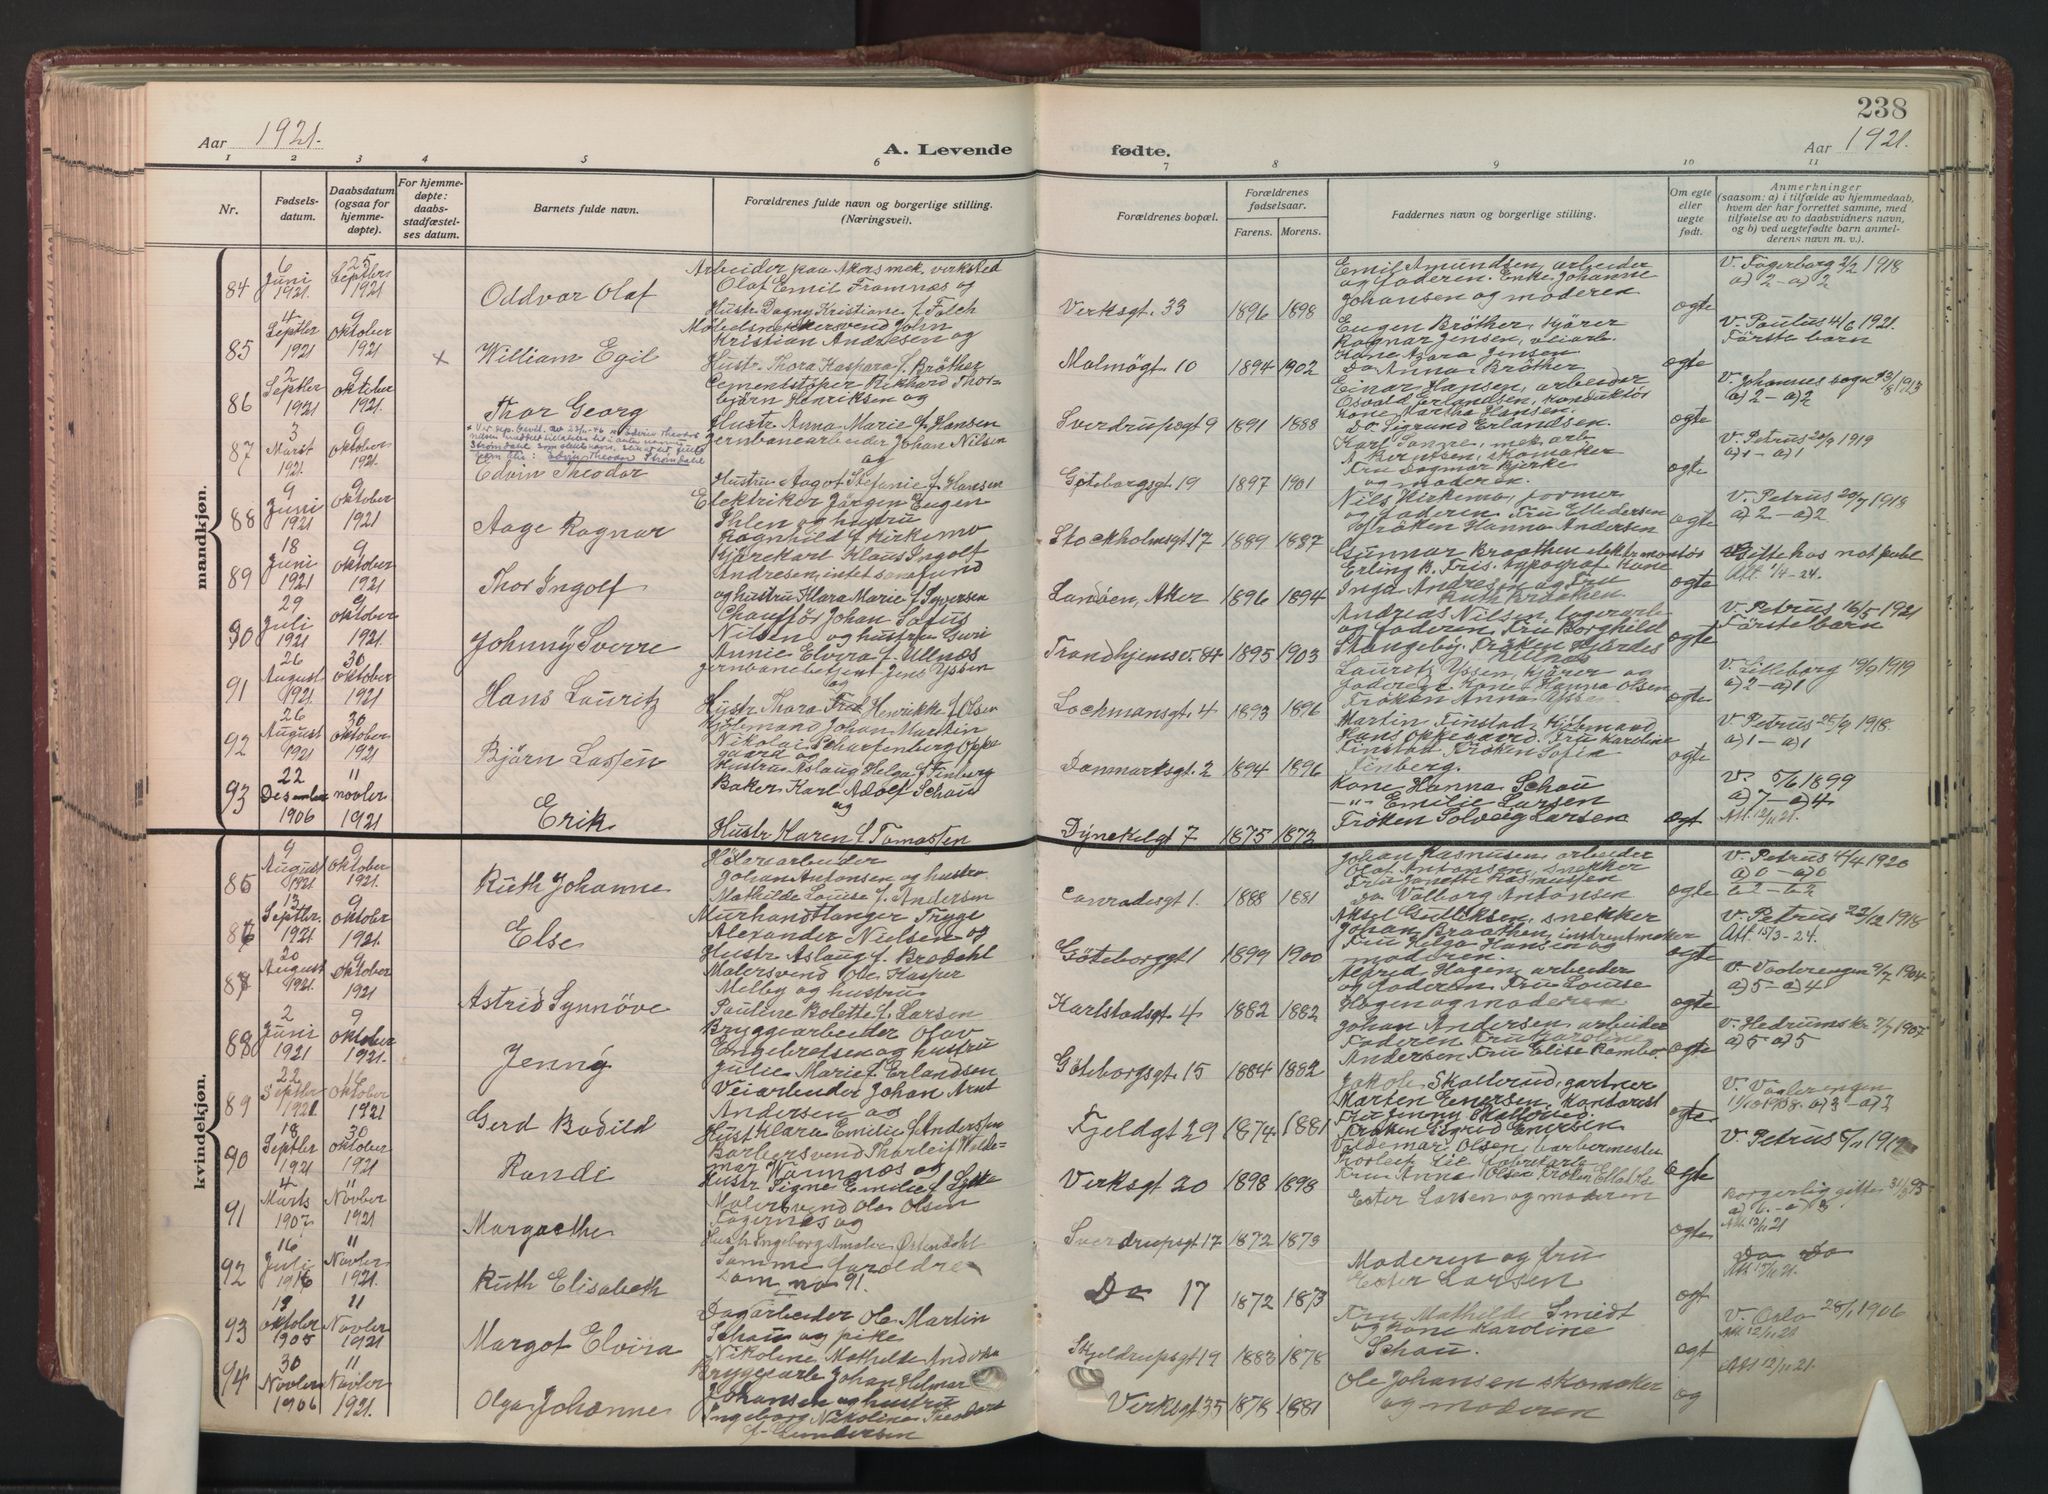 238
Aar 1921.
A. Levende
fødte.
Aar 1921.
1 2 3 4 5 6 7 8 9 10 11
Nr.
Fødsels-
datum.
Daabsdatum
(ogsaa for
hjemme-
døpte).
For hjemme-
døpte:
daabs-
stadfæstel-
ses datum.
Barnets fulde navn.
Forældrenes fulde navn og borgerlige stilling.
(Næringsvei).
Forældrenes bopæl.
Forældrenes
fødselsaar.
Farens. Morens.
Faddernes navn og borgerlige stilling.
Om egte
eller
uegte
født.
Anmerkninger
(saasom: a) i tilfælde av hjemmedaab,
hvem der har forrettet samme, med
tilføielse av to daabsvidners navn,
og b) ved uegtefødte barn anmel-
derens navn m. v.).
mandkjøn.
84
6
Juni
1921.
25
Septbr
1921
Oddvar Olaf
Arbeider paa Akers mek. virksted
Olaf Emil Framnæs og
Hustr. Dagny Kristiane f. Falch
Verksgt. 33
1896 1898
Emil Amundsen, arbeider
og faderen. Enke Johanne
Johansen og moderen
egte
V. Fagerborg 2/2 1918
a) 2 – a) 2
85
4
Septbr
1921
9
oktober
1921
x
William Egil
Møbelsnekkersvend John
Kristian Andresen og
Hustr. Thora Kaspara f. Brøther
Malmøgt 10
1894 1902
Eugen Brøther, kjører
Ragnar Jensen, veiarb.
Kone Jensen
Do Anna Brøther
egte
V. Paulus 4/6 1921.
Første barn
86
2
Septbr
1921
9
oktober
1921.
Thor Georg
Cementstøper Rikhard Thor-
bjørn Henriksen og
Hustr. Anna Marie f. Hansen
Sverdrupsgt 9
1891 1888
Einar Hansen, arbeider
Osvald Erlandsen, konduktør
Kone Martha Hansen.
Do. Sigrund Erlandsen.
egte
V. Johannes
a) 2 – a) 2
87
3
Marst
1921.
9
oktober
1921
Edvin Theodor
Jernbanearbeider Johan Nilsen
og
Hustru Aagot Stefanie f. Hansen
Gøteborgsgt 19
1897 1901
Karl mek. arb
A. Berntsen, skomaker
Fru Dagmar Bjerke
og moderen.
egte
V. Petrus 1919
a) 1 – a) 1
88
9
Juni
1921
9
oktober
1921
Aage Ragnar
Elektriker Jørgen Eugen
Ihlen og hustru
Ragnhild f. Kirkemo
Stockholmsgt 17
1889 1887
Nils Kirkemo, former
og faderen Fru Ellefersen
frøken Hanna Andersen
egte
V. Petrus 20/7 1918
a) 2 – a) 2
89
18
Juni
1921
9
oktober
1921
Thor Ingolf
Kjørekarl Klaus Ingolf
Andresen, intet samfund
og hustru Klara Marie f. Syversen
Landøen, Aker
1896 1894
Gunnar Braathen elektrmontør
Erling B. Fris. typograf Kone
Inga Andresen og Fru
Ruth Braathen
egte
Gifte hos not publ
Att. 1/4 – 24.
90
29
Juli
1921
9
oktober
1921
Johnny Sverre
Chauffør Johan Sofus
Nilsen og hustru Guri
Annie Elvira f. Ullnæs
Trondhjemsv. 84
1895 1903
Andreas Nilsen, lagerarb.
og faderen Fru Borghild
Stangeby. Frøken Hjørdes
Ullnæs
egte
V. Petrus 16/5 1921
Første barn
91
26
August
1921.
30
oktober
1921
Hans Lauritz
Jernbanebetjent Jens Yssen
og
Hustr. Thora Henrikke f. Olsen
Lochmansgt. 4
1893 1896
Lauritz Yssen, kjører og
faderen Kone Hanna Olsen
Frøken Anna Yssen
egte
V. Lilleborg 1919
a) 2 – a) 1
92
26
August
1921
30
oktober
1921
Bjørn Lassen
Kjølemand Johan Martin
Nikolai Scharfenberg Oppe-
gaard og
Hustru Aslaug Helga f. Finberg
Danmarksgt. 2
1894 1896
Martin Finstad, Kjølemand
Hans Oppegaard. Fru Karoline
Finstad Frøken Sofie
Finberg.
egte
V. Petrus 28/9 1918.
a) 1 – a) 1
93
22
Desember
1906
11
novber
1921
Erik
Baker Karl Adolf Schau
og
Hustr Karen f. Tomassen
Dynekilgt 7
1875 1872
Kone Hanna Schau
–"– Emilie Larsen
Frøken Solveig Larsen
egt
V. 5/6 1899
a) 7 – a) 4
Att. 12/11 21.
kvindekjøn.
85
9
August
1921
9
oktober
1921.
Ruth Johanne
Johan Antonsen og hustru
Mathilde Louise f. Andersen
Conradisgt 1.
1888 1881
Johan Rasmusen, arbeider
Olaf Antonsen, snekker
Fru Janette Rasmussen
Do Valborg Antonsen
egte
V. Petrus 4/4 1920
a) 0 – a) 0
b 2 – b 2
86
13
Septbr.
1921
9
oktober
1921.
Else
Murhandtlanger Trygve
Alexander Nielsen og
Hustr Aslaug f. Brodahl
Gøteborggt 1
1899 1900
Aksel Gulliksen, snekker
Johan Braathen, instrumentmaker
Fru Helga Hansen og
moderen.
egte
V. Petrus 22/12 1918
Att. 15/3 – 24.
87
20
August
1921.
9
oktober
1921.
Astrid Synnøve
Malersvend Ole Kasper
Melby og hustru
Pauline Bolette f. Larsen
Karlstadsgt. 4
1882 1882
Alfred Hagen, arbeider
og faderen Fru Louise
Hagen og moderen
egte
V. Vaalerengen 1904
a) 5 – a) 4
88
2
Juni
1921
9
oktober
1921.
Jenny
Bryggearbeider Olav
Engebretsen og hustru
Julie Marie f. Erlandsen
Gøteborgsgt. 15
1884 1882
Johan Andersen, arbeider
Faderen Fru Karoline
Andersen Fru Elise Rambo.
egte
V. Hedrums kr 7/7 1907
a) 5 – a) 5
89
22
Septbr
1921.
16
oktober
1921
Gerd Bodild
Veiarbeider Johan Arnt
Andersen og
Hust Klara Emilie f. Anderssen
Fjeldgt 29
1874. 1881
Jakob Skallerud, gartner
Marten Enersen, Kontorist
Fru Jenny Skallerud.
Frøken Sigrid Enersen
egte
V. Vaalerengen
11/10 1908. a) 3 – a) 3
90
18
Septbr
1921
30
oktober
1921
Randi
Barbersvend Thorleif Walde-
mar Wiumnæs og
Hustr Signe Emilie f. Lykke
Verksgt 20
1898 1898
Valdemar Olsen, barbermester
Thorleif Lie,
Fru Anna Olsen
egte
V. Petrus
91
4
Marts
1907
11
Novber
1921
Margrethe
Malersvend Ola Olsen
Fagernæs og
Hustr Ingeborg Amalie Østendahl
Sverdrupsgt 17
1872 1873
Ester Larsen og moderen
egte
Borgerlig gifte 31/8 95
a) 6. – a) 3.
Att 12/11 21
92
16
Juli
1916
11
Novber
1921.
Ruth Elisabeth
Samme foreldre
som no 91.
Do 17
1872 1873
Moderen og fru
Ester Larsen
egt
Do Do
Att. 12/11 21.
93
19
oktober
1905
11
Novber
1921
Margot Elvira
Dagarbeider Ole Martin
Schau og pike
Nikoline Mathilde
Skjeldrupsgt 19
1883 1878
Fru Mathilde Smedt
og kone Karoline
Schau.
egt
V. Oslo 28/1 1906
Att 12/11 21
94
30
Novber
1906
11
Novber
1921.
Olga Johanne
Bryggearb Johan Helmar
Johansen og hustru
Ingeborg Nikoline
f. Gundersen
Verksgt 35
1878 1881
Ole Johansen skomaker
og moderen
Att 12/11 21.